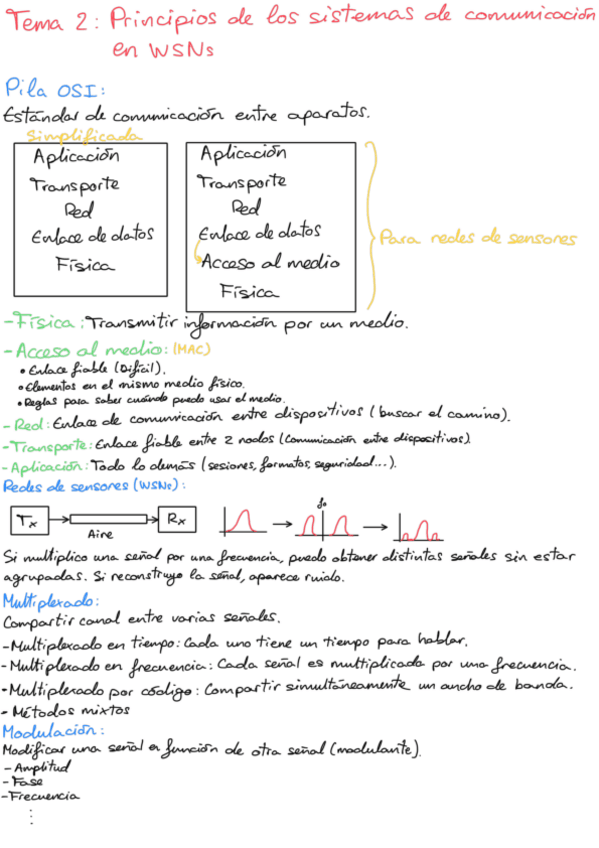 Tema 2: Principios de los sistemas de comunicación
en WSNs
Pila OSI:
Estándar de comunicación entre aparatos.
Simplificada
Aplicación
Transporte
Red
Enlace de datos
Física
Aplicación
Transporte
Red
Enlace de datos
Acceso al medio
Física
Para redes de sensores
-Física: Transmitir información por un medio.
-Acceso al medio: (MAC)
• Enlace fiable (Difícil).
• Elementos en el mismo medio físico.
• Reglas para saber cuándo puedo usar el medio.
- Red: Enlace de comunicación entre dispositivos (buscar el camino).
-Transporte: Enlace fiable entre 2 nodos (Comunicación entre dispositivos).
-Aplicación: Todo lo demás (sesiones, formatos, seguridad...).
Redes de sensores (WSNs):
Tx
Aire
Rx
fo
Si multiplico una señal por una frecuencia, puedo obtener distintas señales sin estar
agrupadas. Si reconstruyo la señal, aparece ruido.
Multiplexado:
Compartir canal entre varias señales.
-Multiplexado en tiempo: Cada uno tiene un tiempo para hablar.
-Multiplexado en frecuencia: Cada señal es multiplicada por una frecuencia.
-Multiplexado por código: Compartir simultáneamente un ancho de banda.
- Métodos mixtos
Modulación:
Modificar una señal en función de otra señal (modulante).
-Amplitud
-Fase
-Frecuencia
⋮